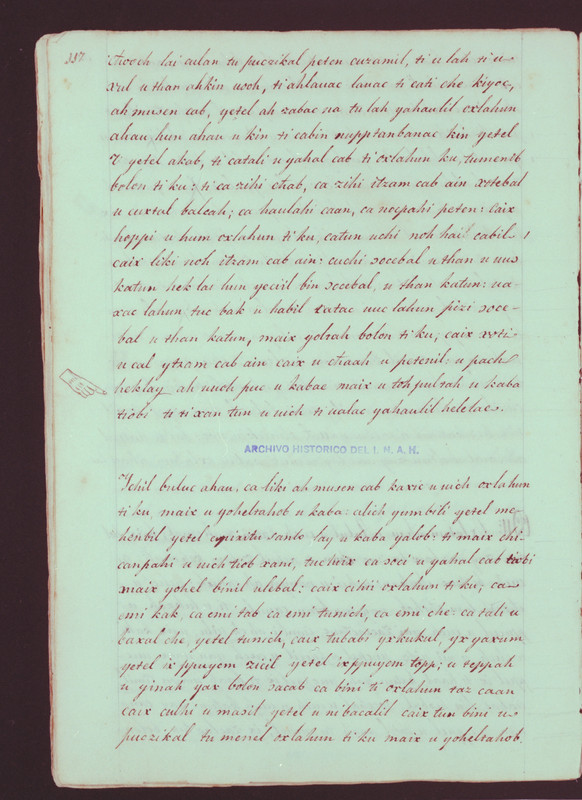 337
choch lai culan tu puczikal peten cuzamil, ti u lah ti u-
xul u than ahkin uoh, ti ahlauac lauac ti cati che kiyoc,
ah musen cab, yetel ah zabac na tu lah yahaulil oxlahun
ahau hun ahau u kin ti cabin nupptanbanac kin yetel
U yetel akab, ti catali u yahal cab ti oxlahun ku, tumenil
bolon ti ku: ti ca zihi chab, ca zihi itzam cab ain xotebal
u cuxtal balcah; ca haulahi caan, ca nocpahi peten: caix
hoppi u hum oxlahun ti ku, catun uchi noh hail cabil
caix liki noh itzam cab ain: cuchi socebal u than u uus
katun hek lai hun yeciil bin socebal, u than katun: ua-
xac lahun tuc bak u habil catac uuc lahun pizi soce-
bal u than katun, maix yolrah bolon ti ku; caix xoti
u cal ytzam cab ain caix u chaah u petenil: u pach
heklay ah uuch puc u kabae maix u toh pultah u kaba
tiobi ti ti xan tun u uich ti ualac yahaulil helelae.
ARCHIVO HISTORICO DEL I. N. A. H.
Ychil buluc ahau, ca liki ah musen cab kaxic u uich oxlahun
ti ku, maix u yoheltahob u kaba: alich yumbili yetel me-
henbil yetel espiritu santo lay u kaba yalob: ti maix chi-
canpahi u uich tiob xani, tucheix ca soci u yahal cab tiobi
maix yohel binil ulebal: caix cihii oxlahun ti ku; ca-
emi kak, ca emi tab ca emi tunich, ca emi che: ca tali u
baxal che, yetel tunich, caix tubabi yxkukul, yx yaxum
yetel ix ppuyem zicil yetel ixppuyem topp; u teppah
u yinah yax bolon sacab ca bini ti oxlahun taz caan
caix culhi u masil yetel u nibacalil caix tun bini u-
puczikal tu menel oxlahun ti ku maix u yoheltahob.